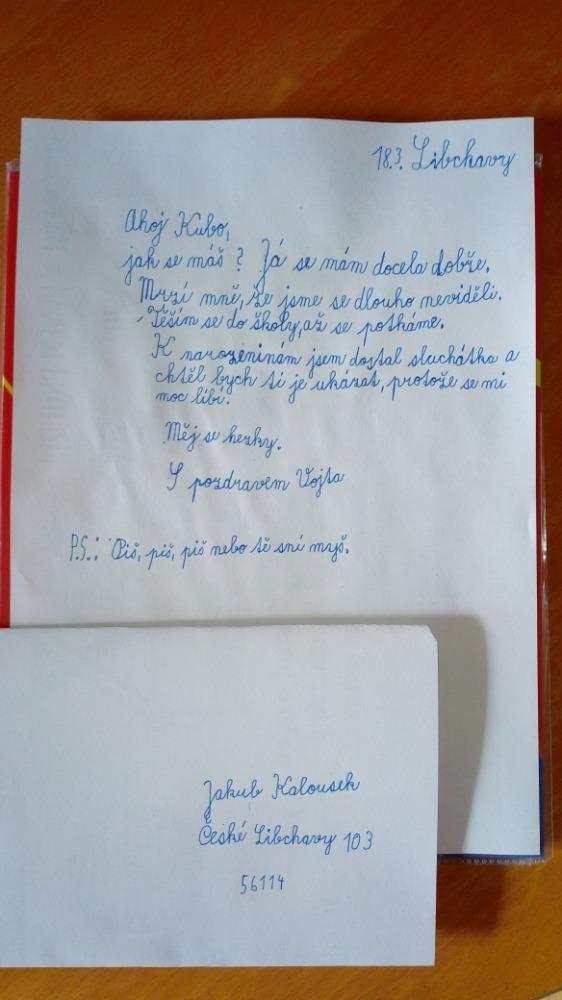 18.3. Libchavy
Ahoj Kubo,
jak se máš? Já se mám docela dobře.
Mrzí mně, že jsme se dlouho neviděli.
Těším se do školy, až se potkáme.
K narozeninam jsem dostal sluchátka a
chtěl bych ti je ukázat, protože se mi
moc líbí.
Měj se hezky.
S pozdravem Vojta
P.S.: Piš, piš, piš nebo tě sní myš.
Jakub Kalousek
České Libchavy 103
56114